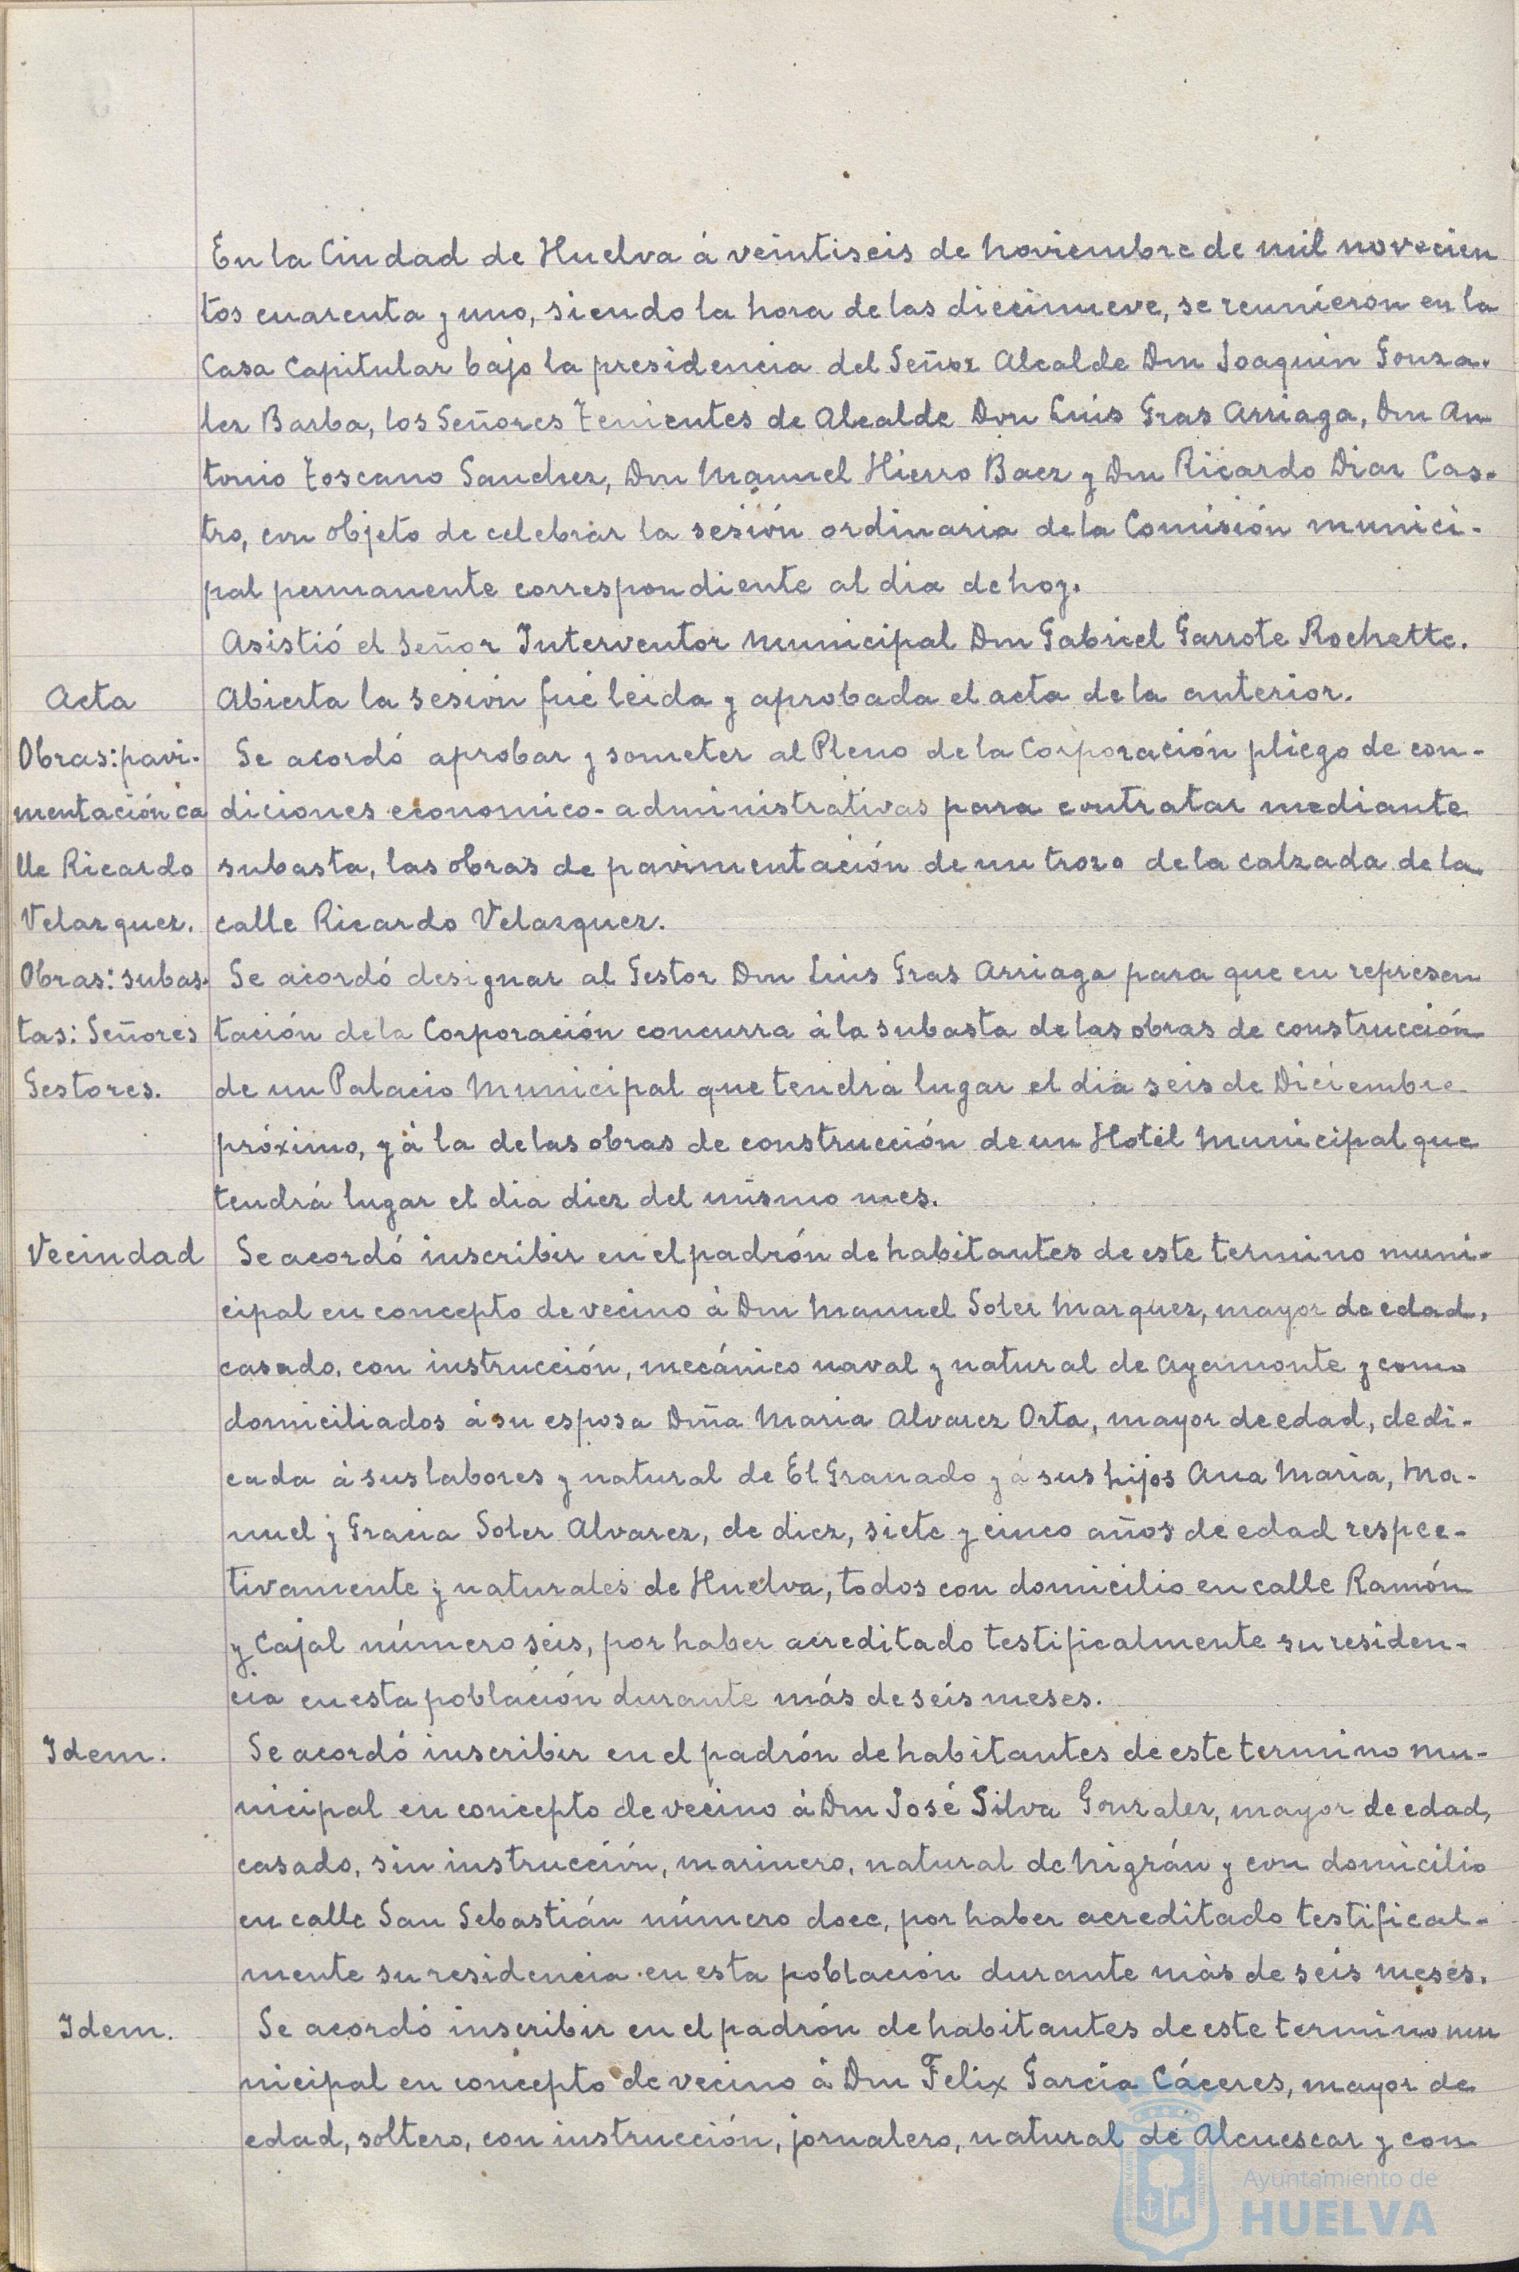 En la Ciudad de Huelva á veintiseis de noviembre de mil novecien
tos cuarenta y uno, siendo la hora de las diecinueve, se reunieron en la
Casa Capitular bajo la presidencia del Señor Alcalde Don Joaquin Gonza-
lez Barba, los Señores Tenientes de Alcalde Don Luis Gras Arriaga, Don An
tonio Toscano Sanchez, Don Manuel Hierro Baez y Don Ricardo Diaz Cas-
tro, con objeto de celebrar la sesión ordinaria de la Comisión munici-
pal permanente correspondiente al dia de hoy.
Asistió el Señor Interventor municipal Don Gabriel Garrote Rochette.
Acta
Abierta la sesión fué leida y aprobada el acta de la anterior.
Obras: pavi-
mentación ca
lle Ricardo
Velazquez.
Se acordó aprobar y someter al Pleno de la Corporación pliego de con-
diciones economico-administrativas para contratar mediante
subasta, las obras de pavimentación de un trozo de la calzada de la
calle Ricardo Velazquez.
Obras: subas-
tas: Señores
Gestores.
Se acordó designar al Gestor Don Luis Gras Arriaga para que en represen
tación de la Corporación concurra á la subasta de las obras de construcción
de un Palacio Municipal que tendrá lugar el dia seis de Diciembre
próximo, y á la de las obras de construcción de un Hotel Municipal que
tendrá lugar el dia diez del mismo mes.
Vecindad
Se acordó inscribir en el padrón de habitantes de este termino muni-
cipal en concepto de vecino á Don Manuel Soler Marquez, mayor de edad,
casado, con instrucción, mecánico naval y natural de Ayamonte y como
domiciliados á su esposa Doña Maria Alvarez Orta, mayor de edad, dedi-
cada á sus labores y natural de El Granado y á sus hijos Ana Maria, Ma-
nuel y Gracia Soler Alvarez, de diez, siete y cinco años de edad respec-
tivamente y naturales de Huelva, todos con domicilio en calle Ramón
y Cajal número seis, por haber acreditado testificalmente su residen-
cia en esta población durante más de seis meses.
Idem.
Se acordó inscribir en el padrón de habitantes de este termino mu-
nicipal en concepto de vecino á Don José Silva Gonzalez, mayor de edad,
casado, sin instrucción, marinero, natural de Nigrán y con domicilio
en calle San Sebastián número doce, por haber acreditado testifical-
mente su residencia en esta población durante más de seis meses.
Idem.
Se acordó inscribir en el padrón de habitantes de este termino mu
nicipal en concepto de vecino á Don Felix Garcia Cáceres, mayor de
edad, soltero, con instrucción, jornalero, natural de Alcuescar y con
Ayuntamiento de
HUELVA